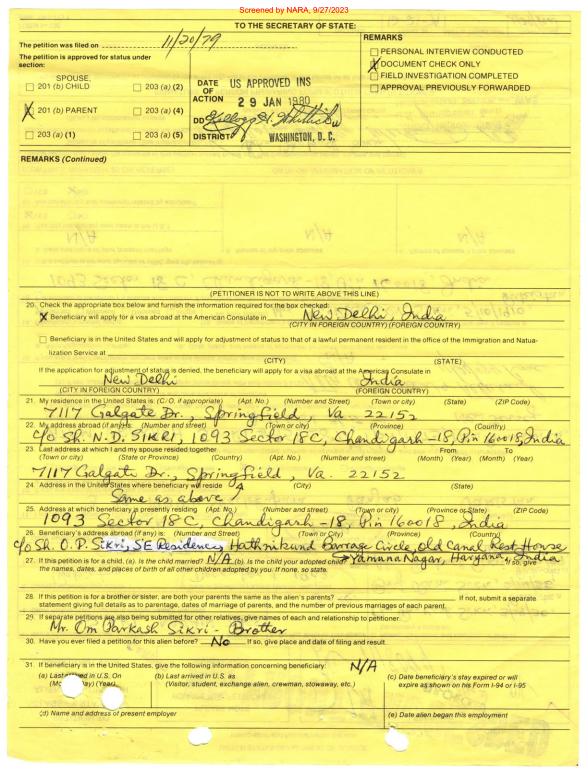 Screened by NARA, 9/27/2023
TO THE SECRETARY OF STATE:
The petition was filed on 11/20/79
The petition is approved for status under section:
SPOUSE,
☐ 201 (b) CHILD ☐ 203 (a) (2)
☒ 201 (b) PARENT ☐ 203 (a) (4)
☐ 203 (a) (1) ☐ 203 (a) (5)
DATE OF ACTION US APPROVED INS
29 JAN 1980
DD
DISTRICT WASHINGTON, D. C.
REMARKS
☐ PERSONAL INTERVIEW CONDUCTED
☒ DOCUMENT CHECK ONLY
☐ FIELD INVESTIGATION COMPLETED
☐ APPROVAL PREVIOUSLY FORWARDED
REMARKS (Continued)
(PETITIONER IS NOT TO WRITE ABOVE THIS LINE)
20. Check the appropriate box below and furnish the information required for the box checked:
X Beneficiary will apply for a visa abroad at the American Consulate in New Delhi, India
(CITY IN FOREIGN COUNTRY) (FOREIGN COUNTRY)
☐ Beneficiary is in the United States and will apply for adjustment of status to that of a lawful permanent resident in the office of the Immigration and Natua-
lization Service at
(CITY) (STATE)
If the application for adjustment of status is denied, the beneficiary will apply for a visa abroad at the American Consulate in
New Delhi India
(CITY IN FOREIGN COUNTRY) (FOREIGN COUNTRY)
21. My residence in the United States is: (C/O, if appropriate) (Apt. No.) (Number and street) (Town or city) (State) (ZIP Code)
7117 Galgate Dr., Springfield, Va. 22152
22. My address abroad (if any) is: (Number and street) (Town or city) (Province) (Country)
C/o Sh. N.D. SIKRI, 1093 Sector 18C, Chandigarh-18, Pin 160018, India
23. Last address at which I and my spouse resided together From To
(Town or city) (State or Province) (Country) (Apt. No.) (Number and street) (Month) (Year) (Month) (Year)
7117 Galgate Dr., Springfield, Va. 22152
24. Address in the United States where beneficiary will reside (City) (State)
Same as above
25. Address at which beneficiary is presently residing (Apt. No.) (Number and street) (Town or city) (Province or State) (ZIP Code)
1093 Sector 18C, Chandigarh-18, Pin 160018, India
26. Beneficiary's address abroad (if any) is: (Number and street) (Town or City) (Province) (Country)
c/o Sh. O.P. Sikri, SE Residence, Hathnikund Barrage Circle, Old Canal Rest House
Yamuna Nagar, Haryana, India
27. If this petition is for a child, (a). Is the child married? N/A (b). Is the child your adopted child? If so, give
the names, dates, and places of birth of all other children adopted by you. If none, so state.
28. If this petition is for a brother or sister, are both your parents the same as the alien's parents? If not, submit a separate
statement giving full details as to parentage, dates of marriage of parents, and the number of previous marriages of each parent.
29. If separate petitions are also being submitted for other relatives, give names of each and relationship to petitioner.
Mr. Om Parkash Sikri - Brother
30. Have you ever filed a petition for this alien before? No If so, give place and date of filing and result.
31. If beneficiary is in the United States, give the following information concerning beneficiary: N/A
(a) Last arrived in U.S. On
(Day) (Year)
(b) Last arrived in U.S. as
(Visitor, student, exchange alien, crewman, stowaway, etc.)
(c) Date beneficiary's stay expired or will
expire as shown on his Form I-94 or I-95
(d) Name and address of present employer
(e) Date alien began this employment